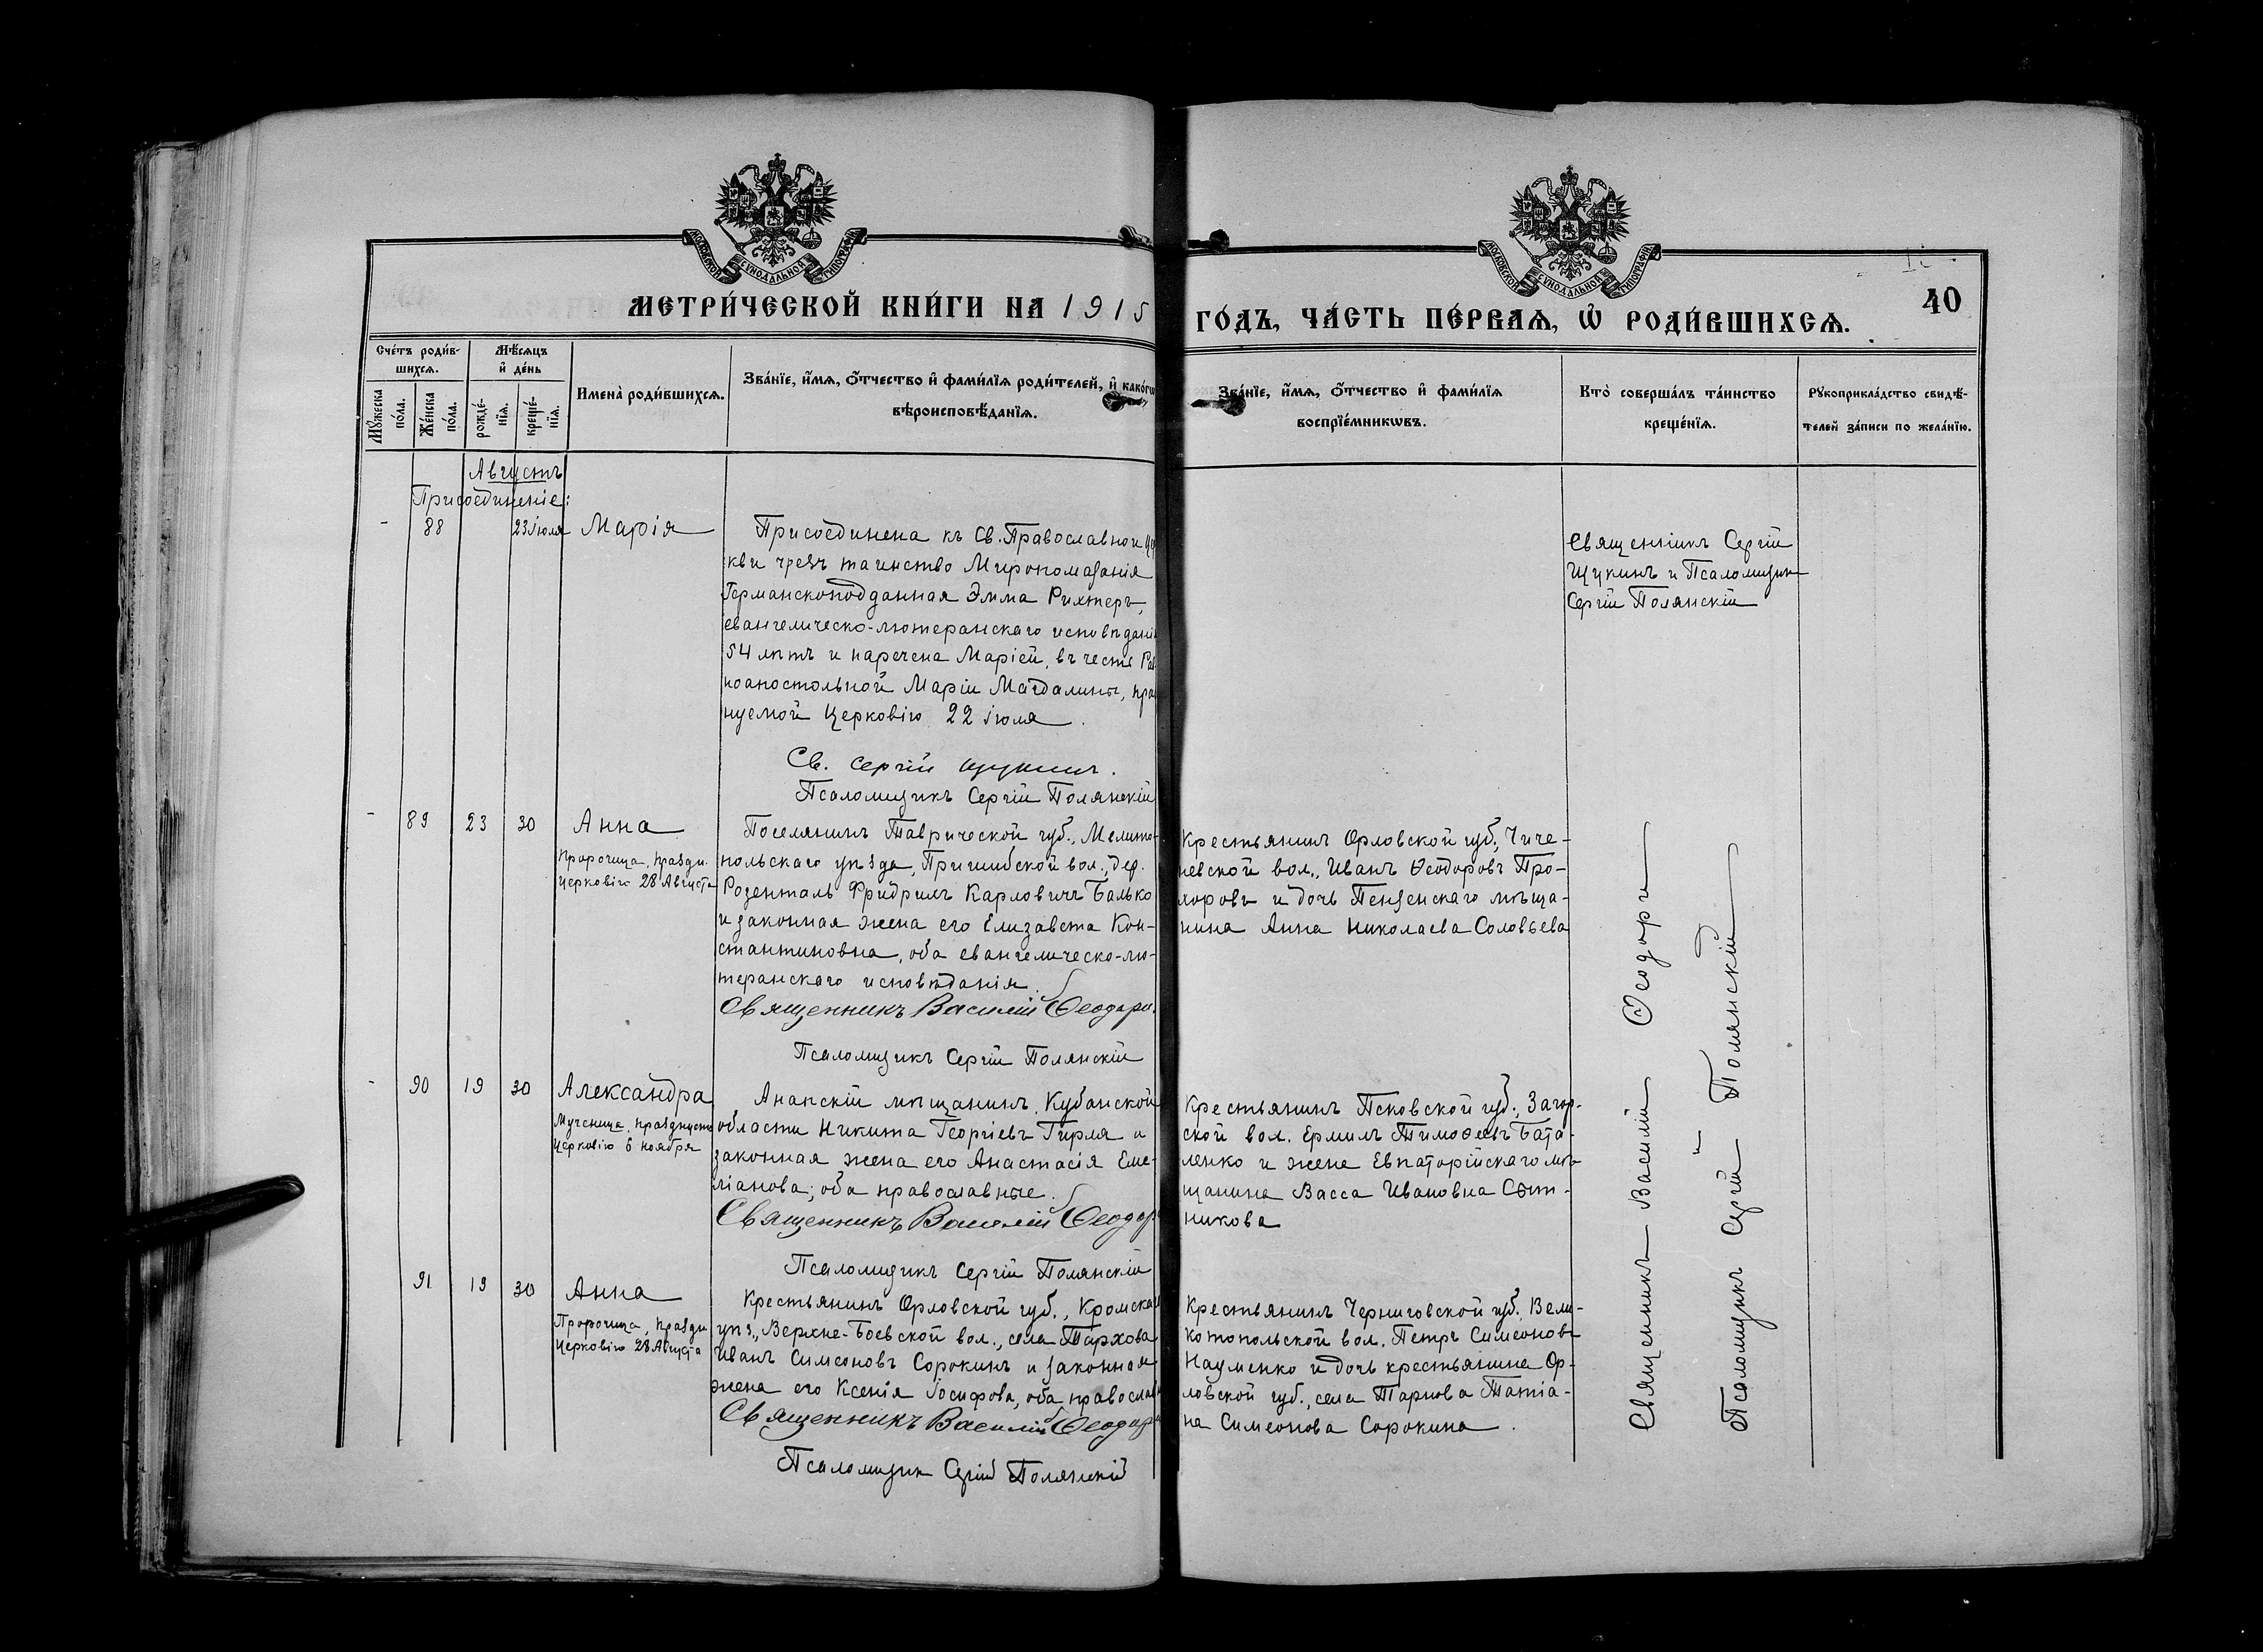 МОСКОВСКОЙ СѴНОДАЛЬНОЙ ТИПОГРАФІИ
МОСКОВСКОЙ СѴНОДАЛЬНОЙ ТИПОГРАФІИ
МЕТРИ́ЧЕСКОЙ КНИ́ГИ НА 1915
ГО́ДЪ, ЧА́СТЬ ПЕ́РВАѦ, Ѡ҆ РОДИ́ВШИХСѦ.
40
Сче́тъ роди́в-
шихсѧ.
Мꙋ́жеска
по́ла.
Же́нска
по́ла.
Мѣ́сѧцъ
и҆ де́нь
рожде́-
нїѧ.
креще́-
нїѧ.
Имена̀ роди́вшихсѧ.
Зва́нїе, и҆́мѧ, ѻ҆́тчество и҆ фами́лїѧ роди́телей, и҆ како́гѡ
вѣроисповѣ́данїѧ.
Зва́нїе, и҆́мѧ, ѻ҆́тчество и҆ фами́лїѧ
воспрїе́мникѡвъ.
Кто̀ соверша́лъ та́инство
креще́нїѧ.
Рꙋкоприкла́дство свидѣ́-
телей за́писи по жела́нїю.
Августъ
Присоединеніе:
- 88 23 іюля Марія
Присоединена къ Св. Православной Цер
кви чрезъ таинство Мѵропомазанія
Германскоподданная Эмма Рихтеръ,
евангелическо-лютеранскаго исповѣдані
54 лѣтъ и наречена Маріей, въ честь Рав
ноапостольной Маріи Магдалины, празд
нуемой Церковію 22 іюля.
Св. Сергій Щукинъ.
Псаломщикъ Сергій Полянскій
Священникъ Сергій
Щукинъ и Псаломщик
Сергій Полянскій
- 89 23 30 Анна
Пророчица, праздн.
Церковію 28 Августа
Поселянинъ Таврической губ., Мелито-
польскаго уѣзда, Пришибской вол., дер.
Розенталь Фридрихъ Карловичъ Балько
и законная жена его Елизавета Кон-
стантиновна, оба евангелическо-лю-
теранскаго исповѣданія.
Священникъ Василій Ѳеодори
Псаломщикъ Сергій Полянскій
Крестьянинъ Орловской губ., Чиче-
невской вол., Иванъ Ѳеодоровъ Про-
хоровъ и дочь Пензенскаго мѣща-
нина Анна Николаева Соловьева
- 90 19 30 Александра
Мученица, празднуемо
Церковію 6 ноября
Анапскій мѣщанинъ, Кубанской
области Никита Георгіевъ Гирля и
законная жена его Анастасія Еме-
ліанова; оба православные.
Священникъ Василій Ѳеодор
Псаломщикъ Сергій Полянскій
Крестьянинъ Псковской губ., Загор-
ской вол. Ермилъ Тимоѳеевъ Бата-
ленко и жена Евпаторійскаго мѣ-
щанина Васса Ивановна Сѣт-
никова
91 19 30 Анна
Пророчица, праздн
Церковію 28 Августа
Крестьянинъ Орловской губ., Кромскаг
уѣз., Верхне-Боевской вол., села Тархова
Иванъ Симеоновъ Сорокинъ и законная
жена его Ксенія Іосифова, оба православ
Священникъ Василій Ѳеодори
Псаломщик Сергій Полянскій
Крестьянинъ Черниговской губ. Вели-
котопольской вол. Петръ Симеоновъ
Науменко и дочь крестьянина Ор-
ловской губ., села Тархова Татіа-
на Симеонова Сорокина.
Священникъ Василій Ѳеодори
Псаломщикъ Сергій Полянскій